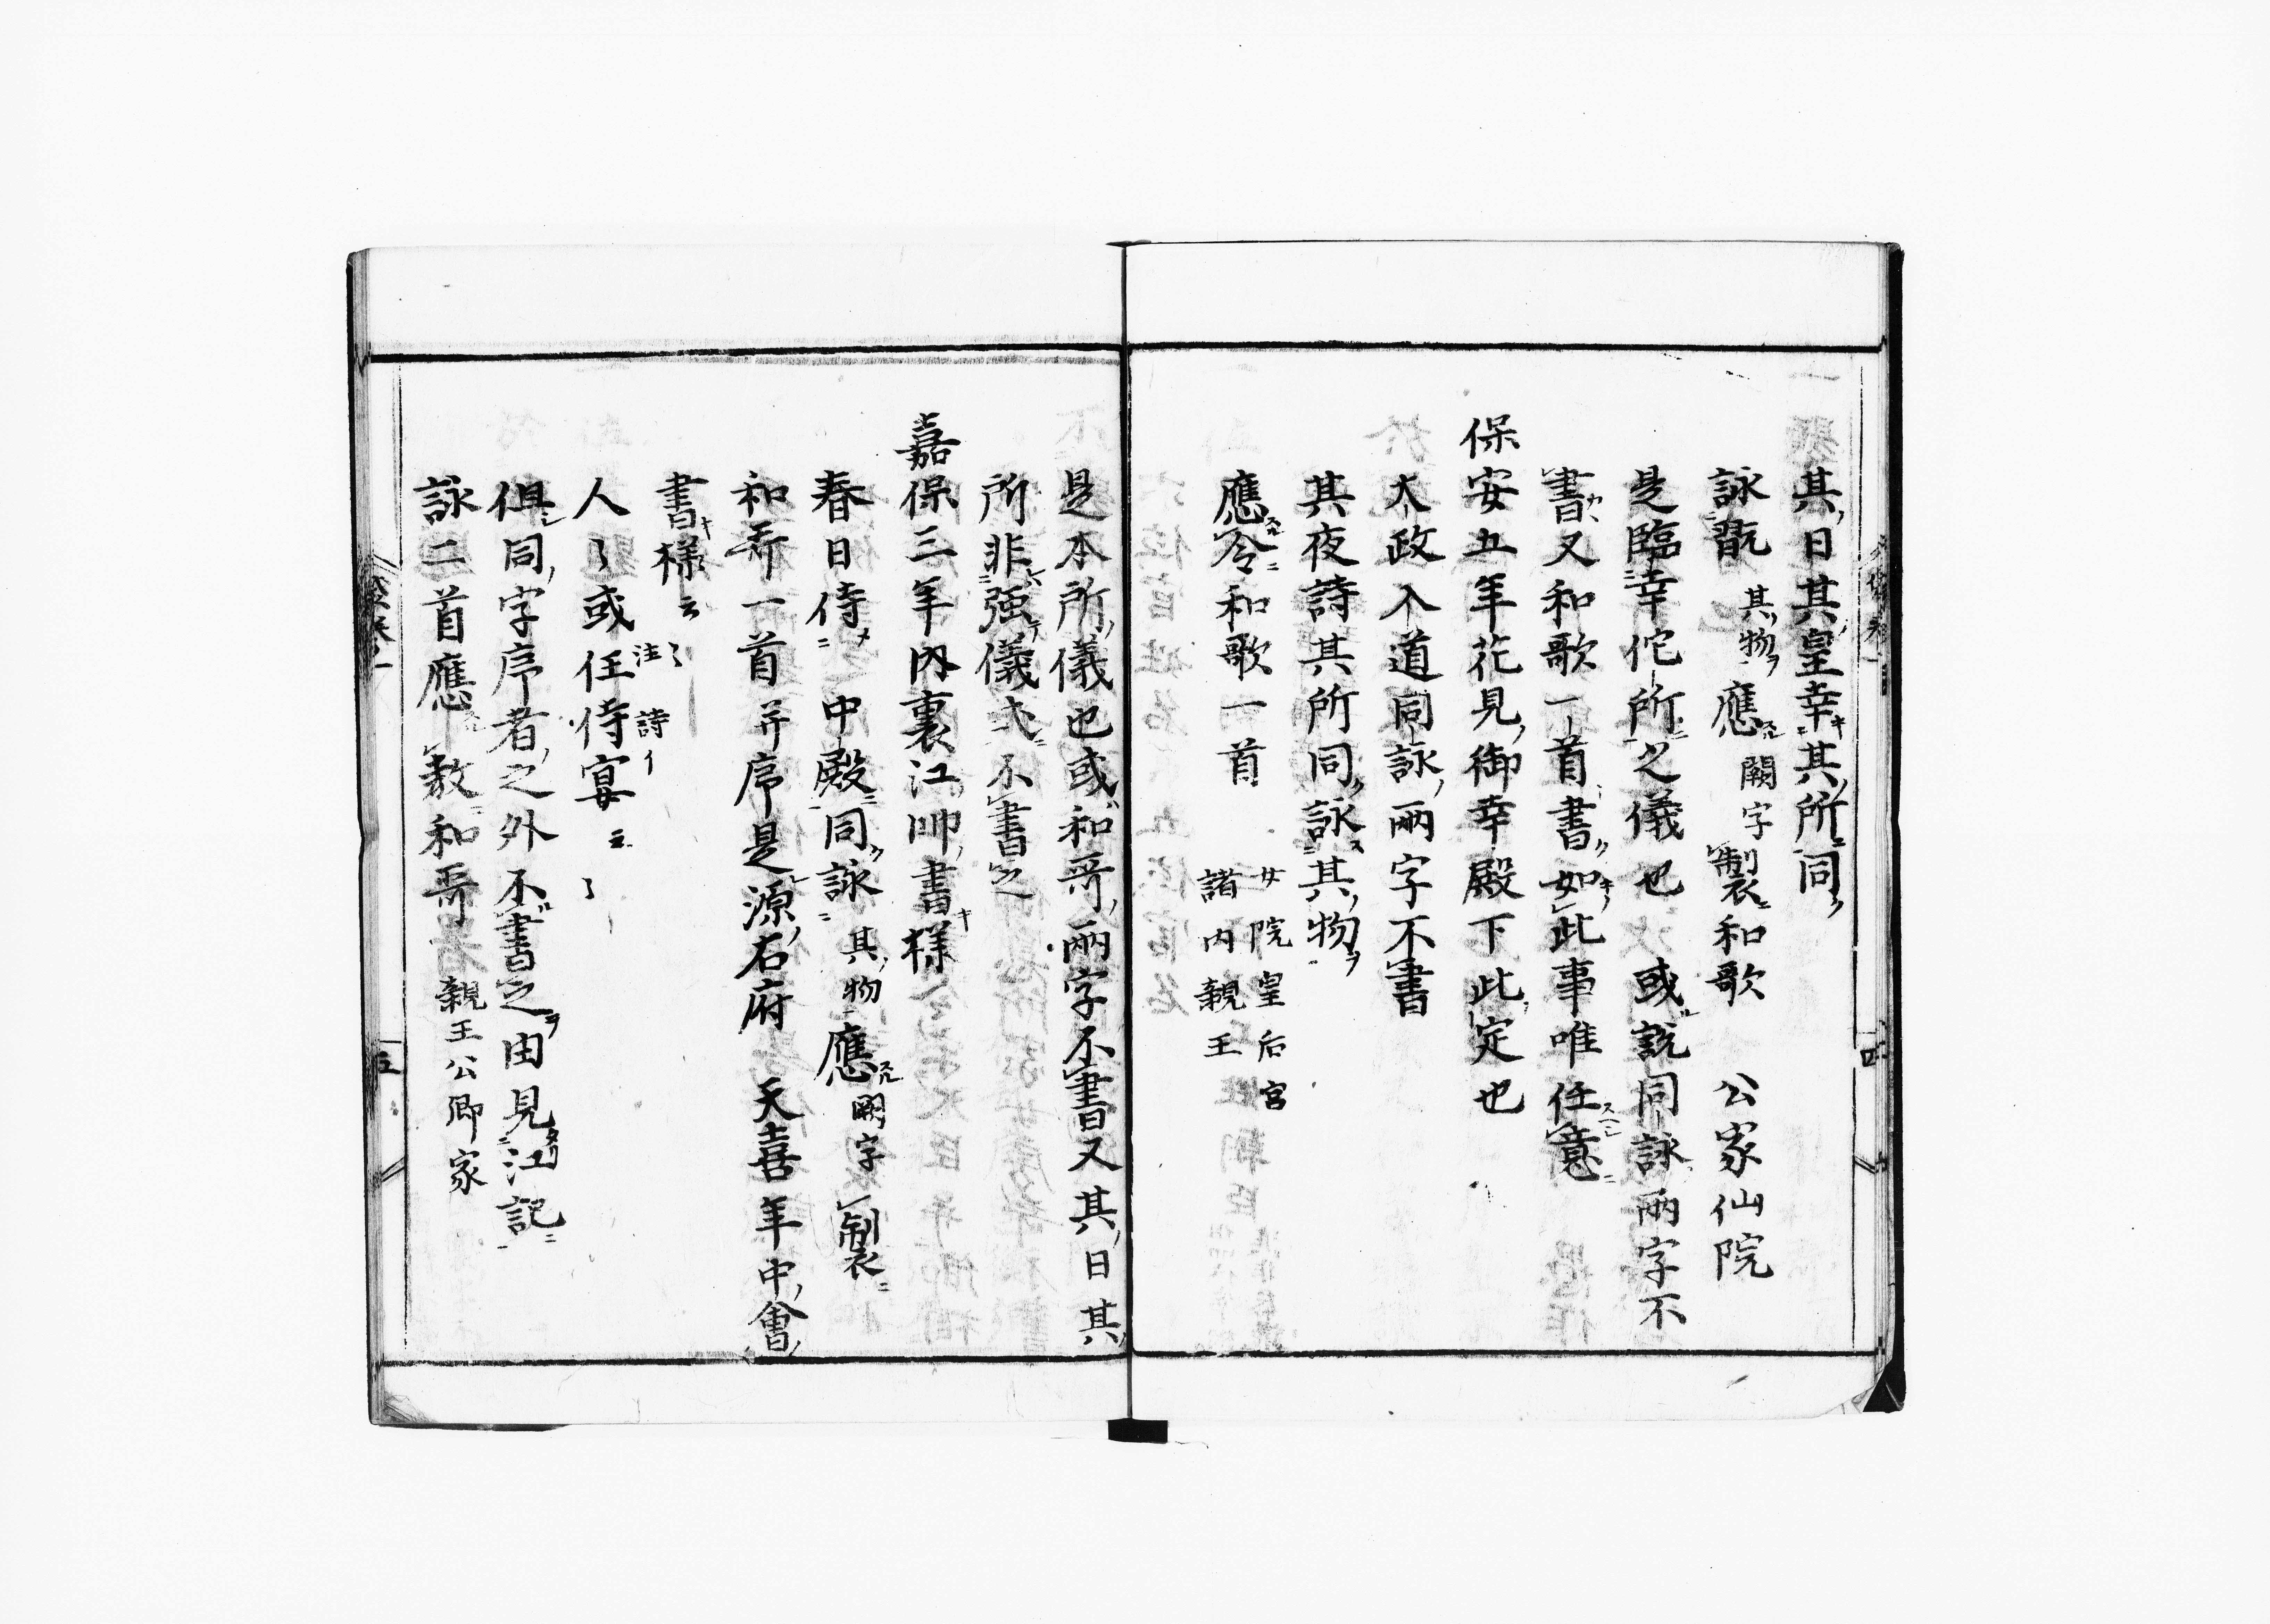 其日其皇幸其所同
詠翫其物應闕字製和歌　公家仙院
是臨幸佗所之儀也　或説同詠兩字不
書又和歌一首書如此事唯任意
保安五年花見御幸殿下此定也
太政入道同詠兩字不書
其夜詩其所同詠其物
應令和歌一首　女院皇后宮
諸内親王
是本所儀也或和哥兩字不書又其日其
所非強儀式不書之
嘉保三年内裏江帥書様
春日侍　中殿同詠其物應闕字　製
和哥一首并序是源右府　天喜年中會
書様云
人々或任侍宴
注　詩イ
但同字序者之外不書之由見江記
詠二首應　教和哥　親王公卿家
四
五